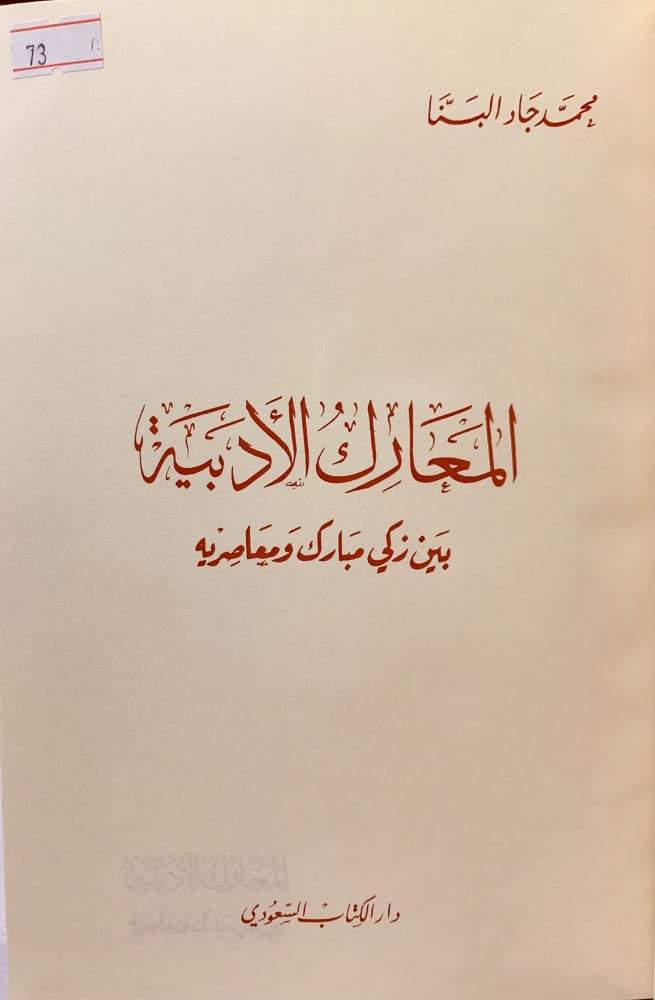 73
محمّد جَاد البَنَّا
المَعَارِكُ الأَدَبيَة
بَين زكي مبَارك وَمعَاصِريه
دَار الكِتَابْ السّعُودي